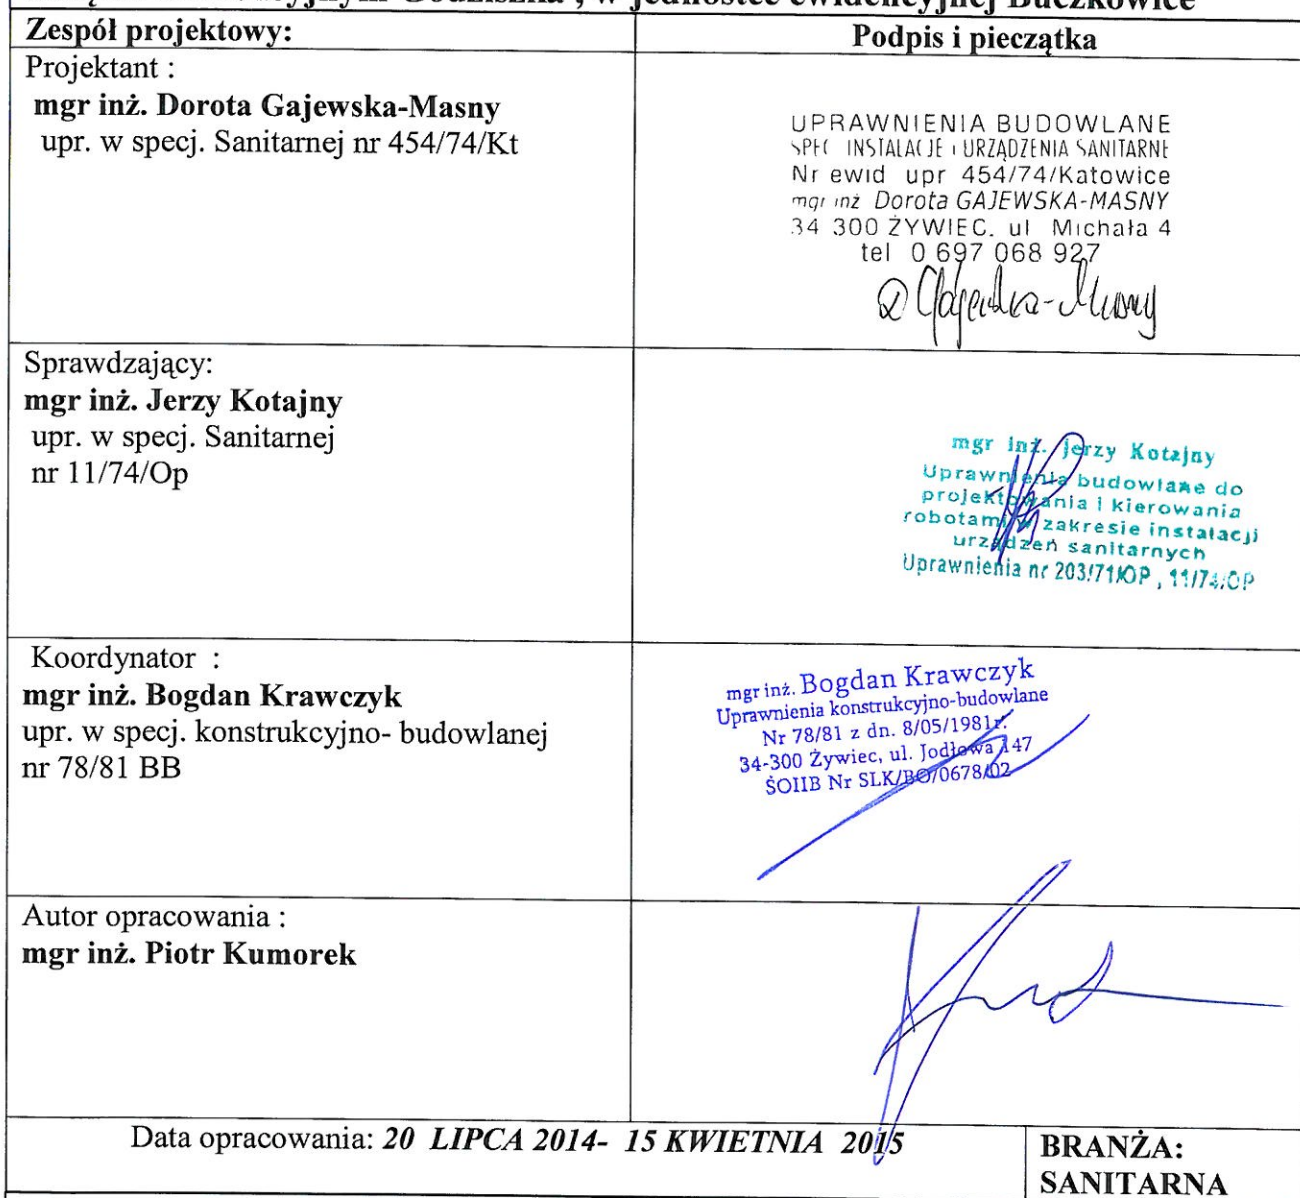 , w jednostce ewidencyjnej Buczkowice
Zespół projektowy:
Podpis i pieczątka
Projektant :
mgr inż. Dorota Gajewska-Masny
upr. w specj. Sanitarnej nr 454/74/Kt
UPRAWNIENIA BUDOWLANE
SPEC INSTALACJE I URZĄDZENIA SANITARNE
Nr ewid upr 454/74/Katowice
mgr inż Dorota GAJEWSKA-MASNY
34 300 ŻYWIEC. ul Michała 4
tel 0 697 068 927
D Gajewska-Masny
Sprawdzający:
mgr inż. Jerzy Kotajny
upr. w specj. Sanitarnej
nr 11/74/Op
mgr inż. Jerzy Kotajny
Uprawnienia budowlane do
projektowania i kierowania
robotami w zakresie instalacji
urządzeń sanitarnych
Uprawnienia nr 203/71/OP , 11/74/OP
Koordynator :
mgr inż. Bogdan Krawczyk
upr. w specj. konstrukcyjno- budowlanej
nr 78/81 BB
mgr inż. Bogdan Krawczyk
Uprawnienia konstrukcyjno-budowlane
Nr 78/81 z dn. 8/05/1981r.
34-300 Żywiec, ul. Jodłowa 147
ŚOIIB Nr SLK/BO/0678/02
Autor opracowania :
mgr inż. Piotr Kumorek
Data opracowania: 20 LIPCA 2014- 15 KWIETNIA 2015
BRANŻA:
SANITARNA